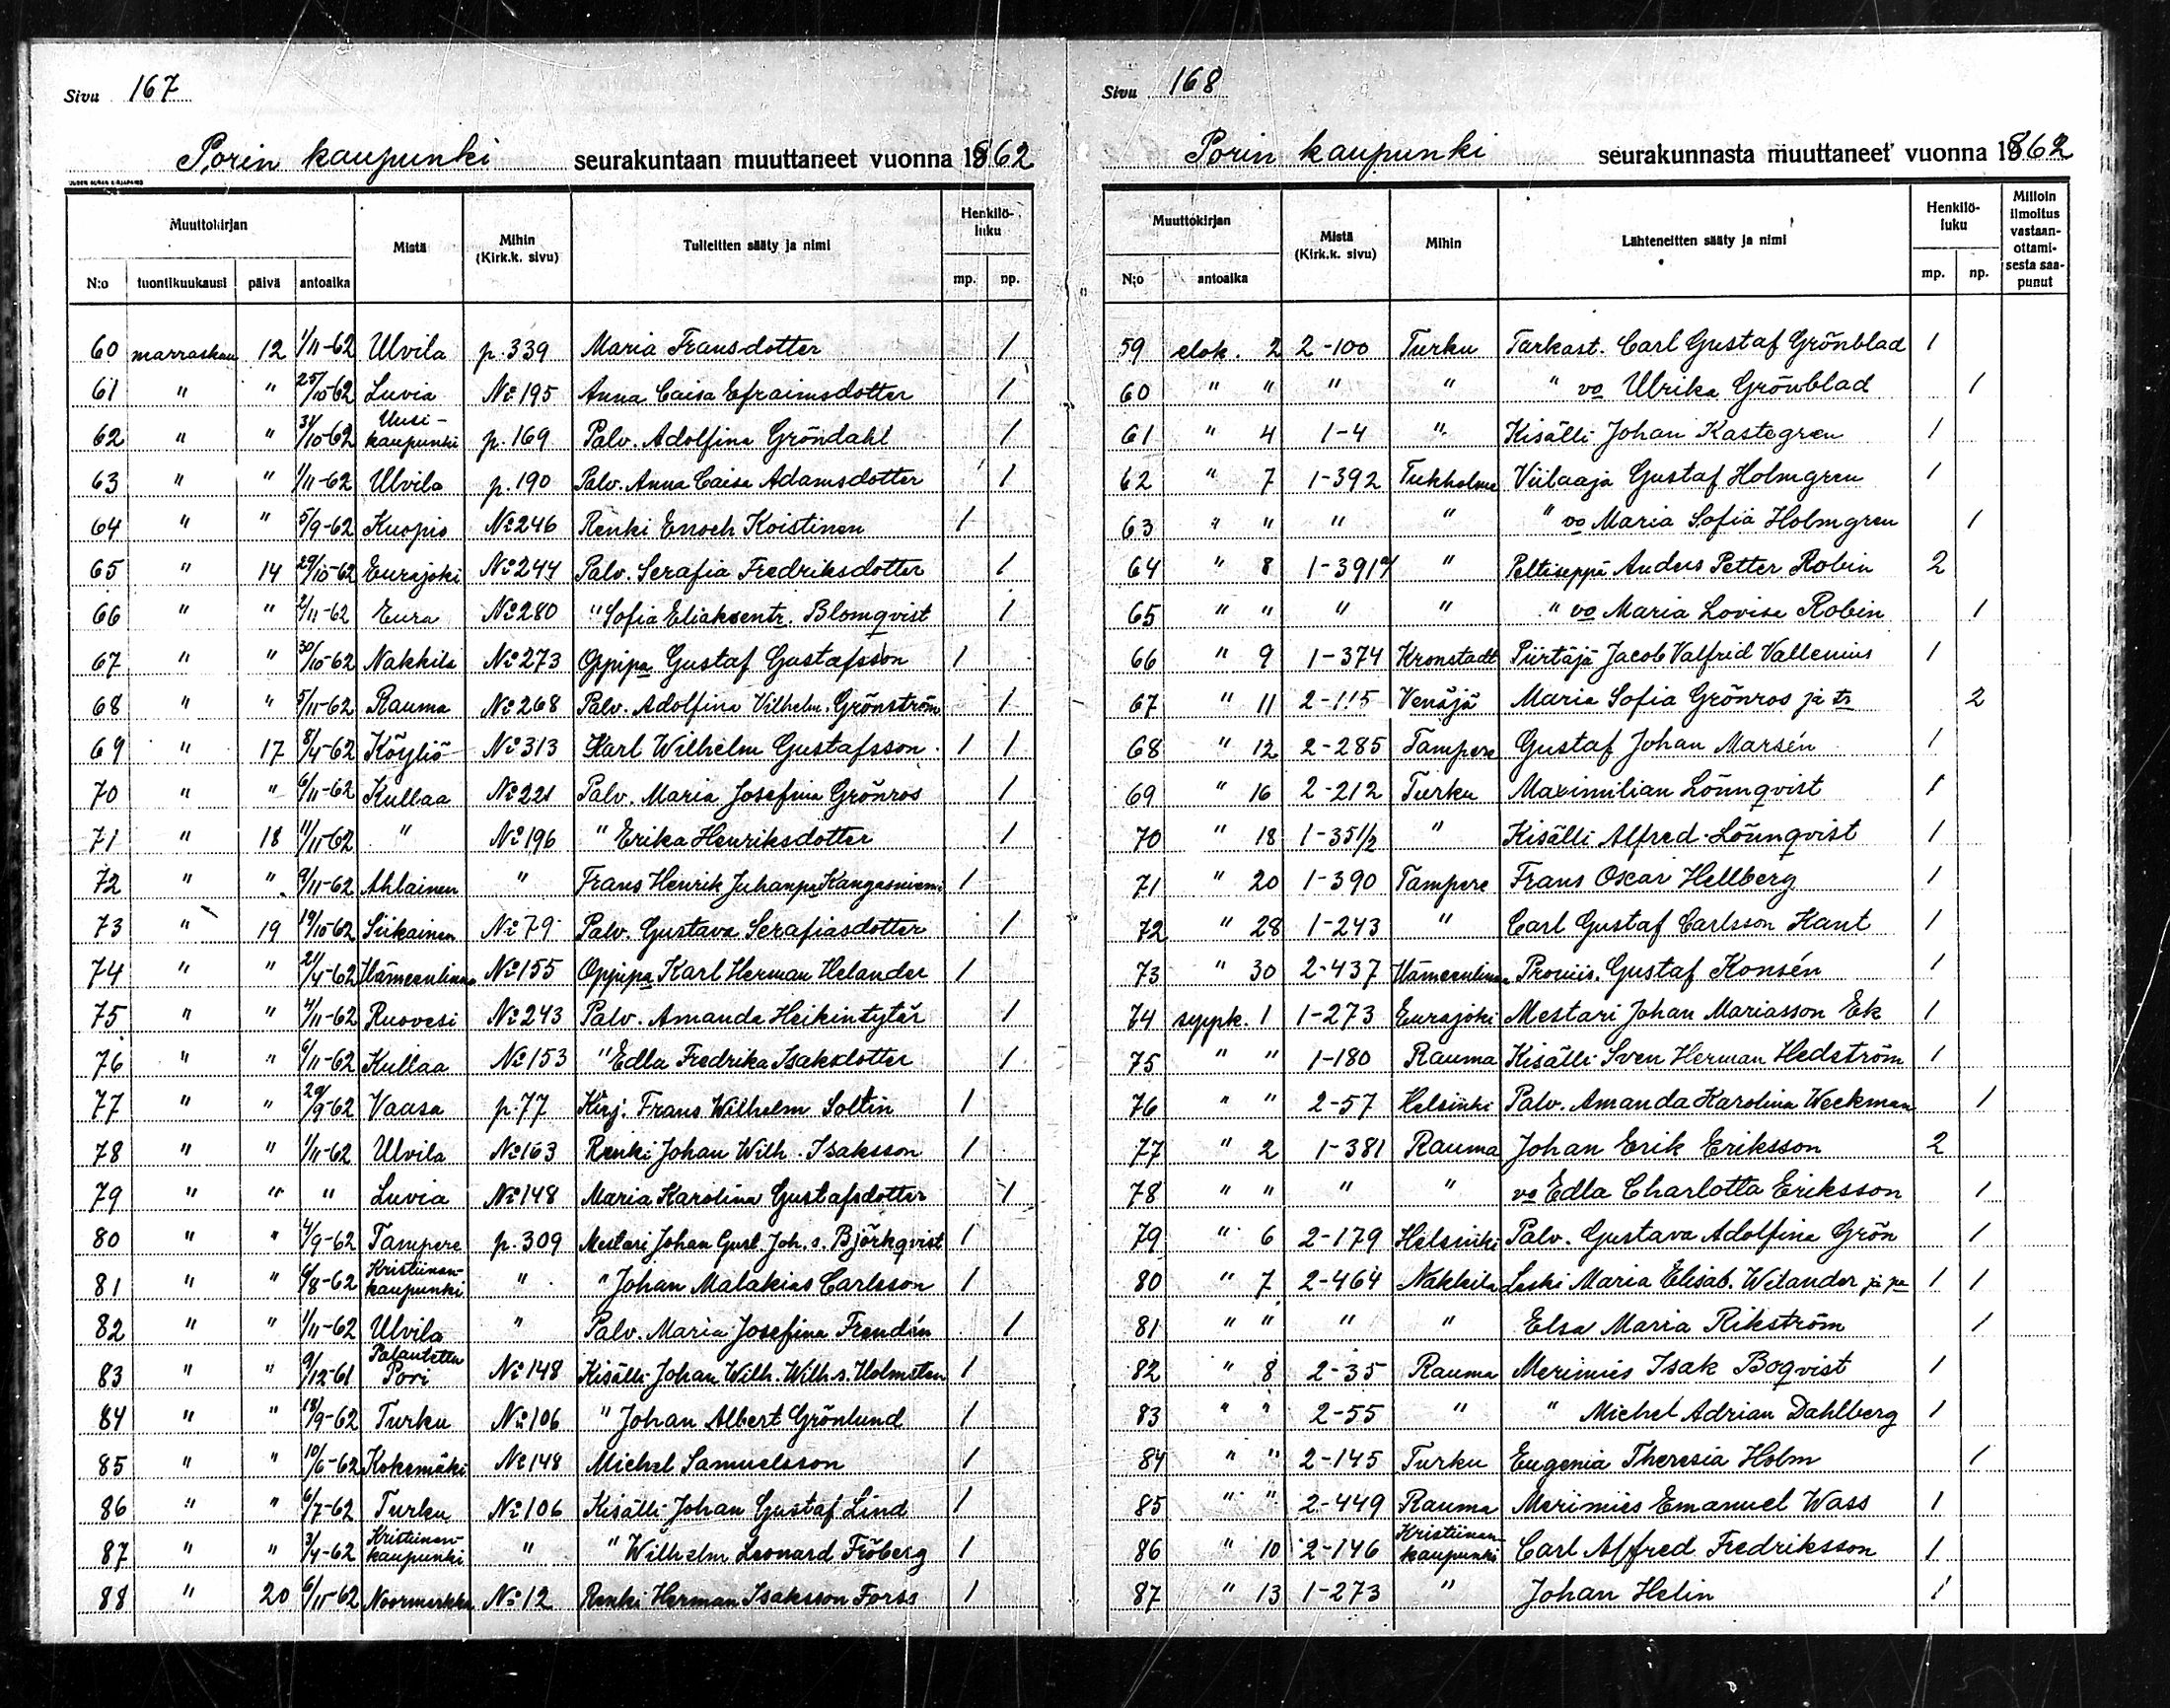 Sivu 167
Porin kaupunki seurakuntaan muuttaneet vuonna 1862
Muuttokirjan Mistä Mihin (Kirk.k. sivu) Tulleitten sääty ja nimi Henkilöluku
N:o tuontikuukausi päivä antoaika mp. np.
60 marraskuu 12 1/11-62 Ulvila p. 339 Maria Fransdotter 1
61 " " 25/10-62 Luvia No 195 Anna Caisa Efraimsdotter 1
62 " " 31/10-62 Uusi-kaupunki p. 169 Palv. Adolfina Gröndahl 1
63 " " 1/11-62 Ulvila p. 190 Palv. Anna Caisa Adamsdotter 1
64 " " 5/9-62 Kuopio No 246 Renki Enoch Koistinen 1
65 " 14 29/10-62 Eurajoki No 244 Palv. Serafia Fredriksdotter 1
66 " " 2/11-62 Eura No 280 " Sofia Eliaksentr. Blomqvist 1
67 " " 30/10-62 Nakkila No 273 Oppipa Gustaf Gustafsson 1
68 " " 5/11-62 Rauma No 268 Palv. Adolfina Vilhelm. Grönström 1
69 " 17 8/4-62 Köyliö No 313 Karl Wilhelm Gustafsson 1 1
70 " " 6/11-62 Kullaa No 221 Palv. Maria Josefina Grönros 1
71 " 18 11/11-62 " No 196 " Erika Henriksdotter 1
72 " " 9/11-62 Ahlainen " Frans Henrik Juhanpa Kangasniemi 1
73 " 19 19/10-62 Siikainen No 79 Palv. Gustava Serafiasdotter 1
74 " " 21/4-62 Hämeenlinna No 155 Oppipa Karl Herman Helander 1
75 " " 4/11-62 Ruovesi No 243 Palv. Amanda Heikintytär 1
76 " " 6/11-62 Kullaa No 153 " Edla Fredrika Isaksdotter 1
77 " " 29/9-62 Vaasa p. 77 Kirj. Frans Wilhelm Soltin 1
78 " " 1/11-62 Ulvila No 163 Renki Johan Wilh. Isaksson 1
79 " " " Luvia No 148 Maria Karolina Gustafsdotter 1
80 " " 4/9-62 Tampere p. 309 Mestari Johan Gust. Joh. s. Björkqvist 1
81 " " 6/8-62 Kristiinan-kaupunki " " Johan Malakias Carlsson 1
82 " " 1/11-62 Ulvila " Palv. Maria Josefina Frendén 1
83 " " 9/12-61 Palautettu Pori No 148 Kisälli Johan Wilh. Wilh. s. Holmsten 1
84 " " 18/9-62 Turku No 106 " Johan Albert Grönlund 1
85 " " 10/6-62 Kokemäki No 148 Michel Samuelsson 1
86 " " 6/7-62 Turku No 106 Kisälli Johan Gustaf Lind 1
87 " " 3/4-62 Kristiinan-kaupunki " " Wilhelm Leonard Fröberg 1
88 " 20 6/11-62 Noormarkku No 12 Renki Herman Isaksson Forss 1
Sivu 168
Porin kaupunki seurakunnasta muuttaneet vuonna 1862
Muuttokirjan Mistä (Kirk.k. sivu) Mihin Lähteneitten sääty ja nimi Henkilöluku Milloin ilmoitus vastaanottamisesta saapunut
N:o antoaika mp. np.
59 elok. 2 2-100 Turku Tarkast. Carl Gustaf Grönblad 1
60 " " " " " vo Ulrika Grönblad 1
61 " 4 1-4 " Kisälli Johan Kastegren 1
62 " 7 1-392 Tukholma Viilaaja Gustaf Holmgren 1
63 " " " " " vo Maria Sofia Holmgren 1
64 " 8 1-391 " Peltiseppä Anders Petter Robin 2
65 " " " " " vo Maria Lovisa Robin 1
66 " 9 1-374 Kronstadt Piirtäjä Jacob Valfrid Vallenius 1
67 " 11 2-115 Venäjä Maria Sofia Grönros ja tr 2
68 " 12 2-285 Tampere Gustaf Johan Marsén 1
69 " 16 2-212 Turku Maximilian Lönnqvist 1
70 " 18 1-351/2 " Kisälli Alfred Lönnqvist 1
71 " 20 1-390 Tampere Frans Oscar Hellberg 1
72 " 28 1-243 " Carl Gustaf Carlsson Kant 1
73 " 30 2-437 Hämeenlinna Proviis. Gustaf Konsén 1
74 syysk. 1 1-273 Eurajoki Mestari Johan Mariasson Ek 1
75 " " 1-180 Rauma Kisälli Sven Herman Hedström 1
76 " " 2-57 Helsinki Palv. Amanda Karolina Weckman 1
77 " 2 1-381 Rauma Johan Erik Eriksson 2
78 " " " " vo Edla Charlotta Eriksson 1
79 " 6 2-179 Helsinki Palv. Gustava Adolfina Grön 1
80 " 7 2-464 Nakkila Leski Maria Elisab. Welander ja pa 1 1
81 " " " " Elsa Maria Rikström 1
82 " 8 2-35 Rauma Merimies Isak Boqvist 1
83 " " 2-55 " " Michel Adrian Dahlberg 1
84 " " 2-145 Turku Eugenia Theresia Holm 1
85 " " 2-449 Rauma Merimies Emanuel Wass 1
86 " 10 2-146 Kristiinan-kaupunki Carl Alfred Fredriksson 1
87 " 13 1-273 " Johan Helin 1